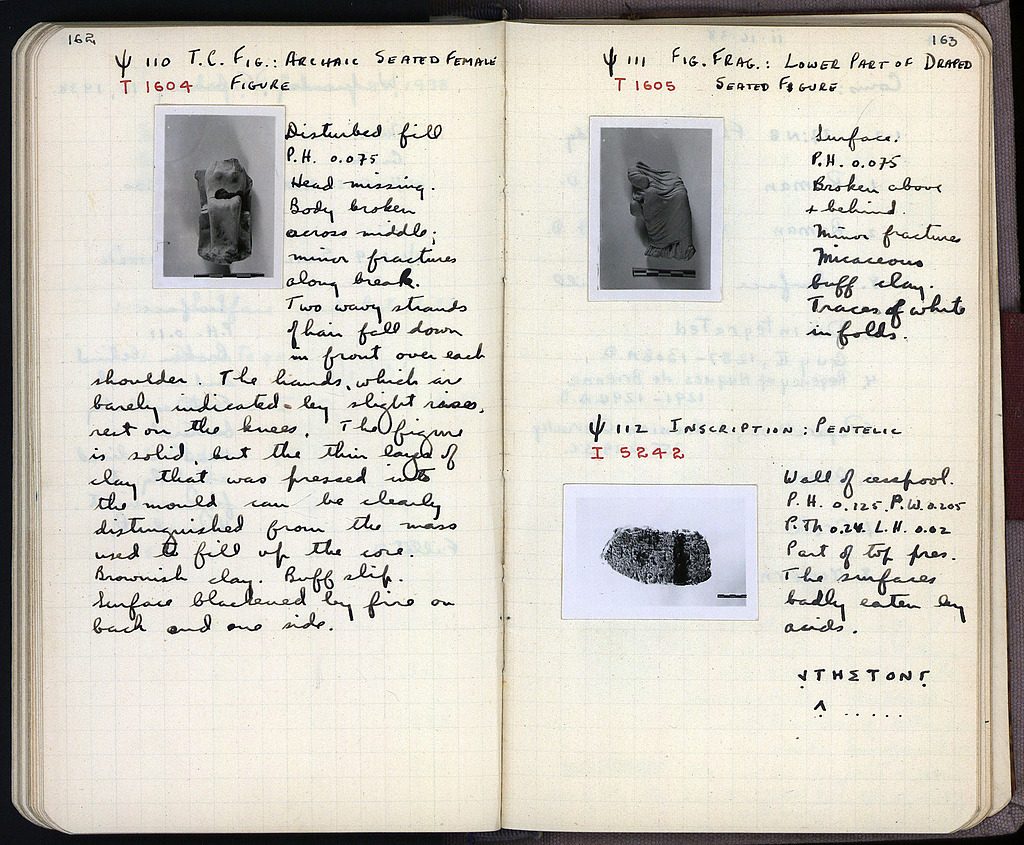 162
Ψ 110 T.C. FIG.: ARCHAIC SEATED FEMALE
T 1604 FIGURE
Disturbed fill
P.H. 0.075
Head missing.
Body broken
across middle;
minor fractures
along break.
Two wavy strands
of hair fall down
in front over each
shoulder. The hands, which are
barely indicated by slight raises,
rest on the knees. The figure
is solid, but the thin layer of
clay that was pressed into
the mould can be clearly
distinguished from the mass
used to fill up the core.
Brownish clay. Buff slip.
Surface blackened by fire on
back and one side.
163
Ψ 111 FIG. FRAG.: LOWER PART OF DRAPED
T 1605 SEATED FIGURE
Surface.
P.H. 0.075
Broken above
+ behind.
Minor fractures
Micaceous
buff clay.
Traces of white
in folds.
Ψ 112 INSCRIPTION: PENTELIC
I 5242
Wall of cesspool.
P.H. 0.125 P.W. 0.205
P.Th 0.24 L.H. 0.02
Part of top pres.
The surfaces
badly eaten by
acids.
ΤΗΕΤΟΝ
Λ ......